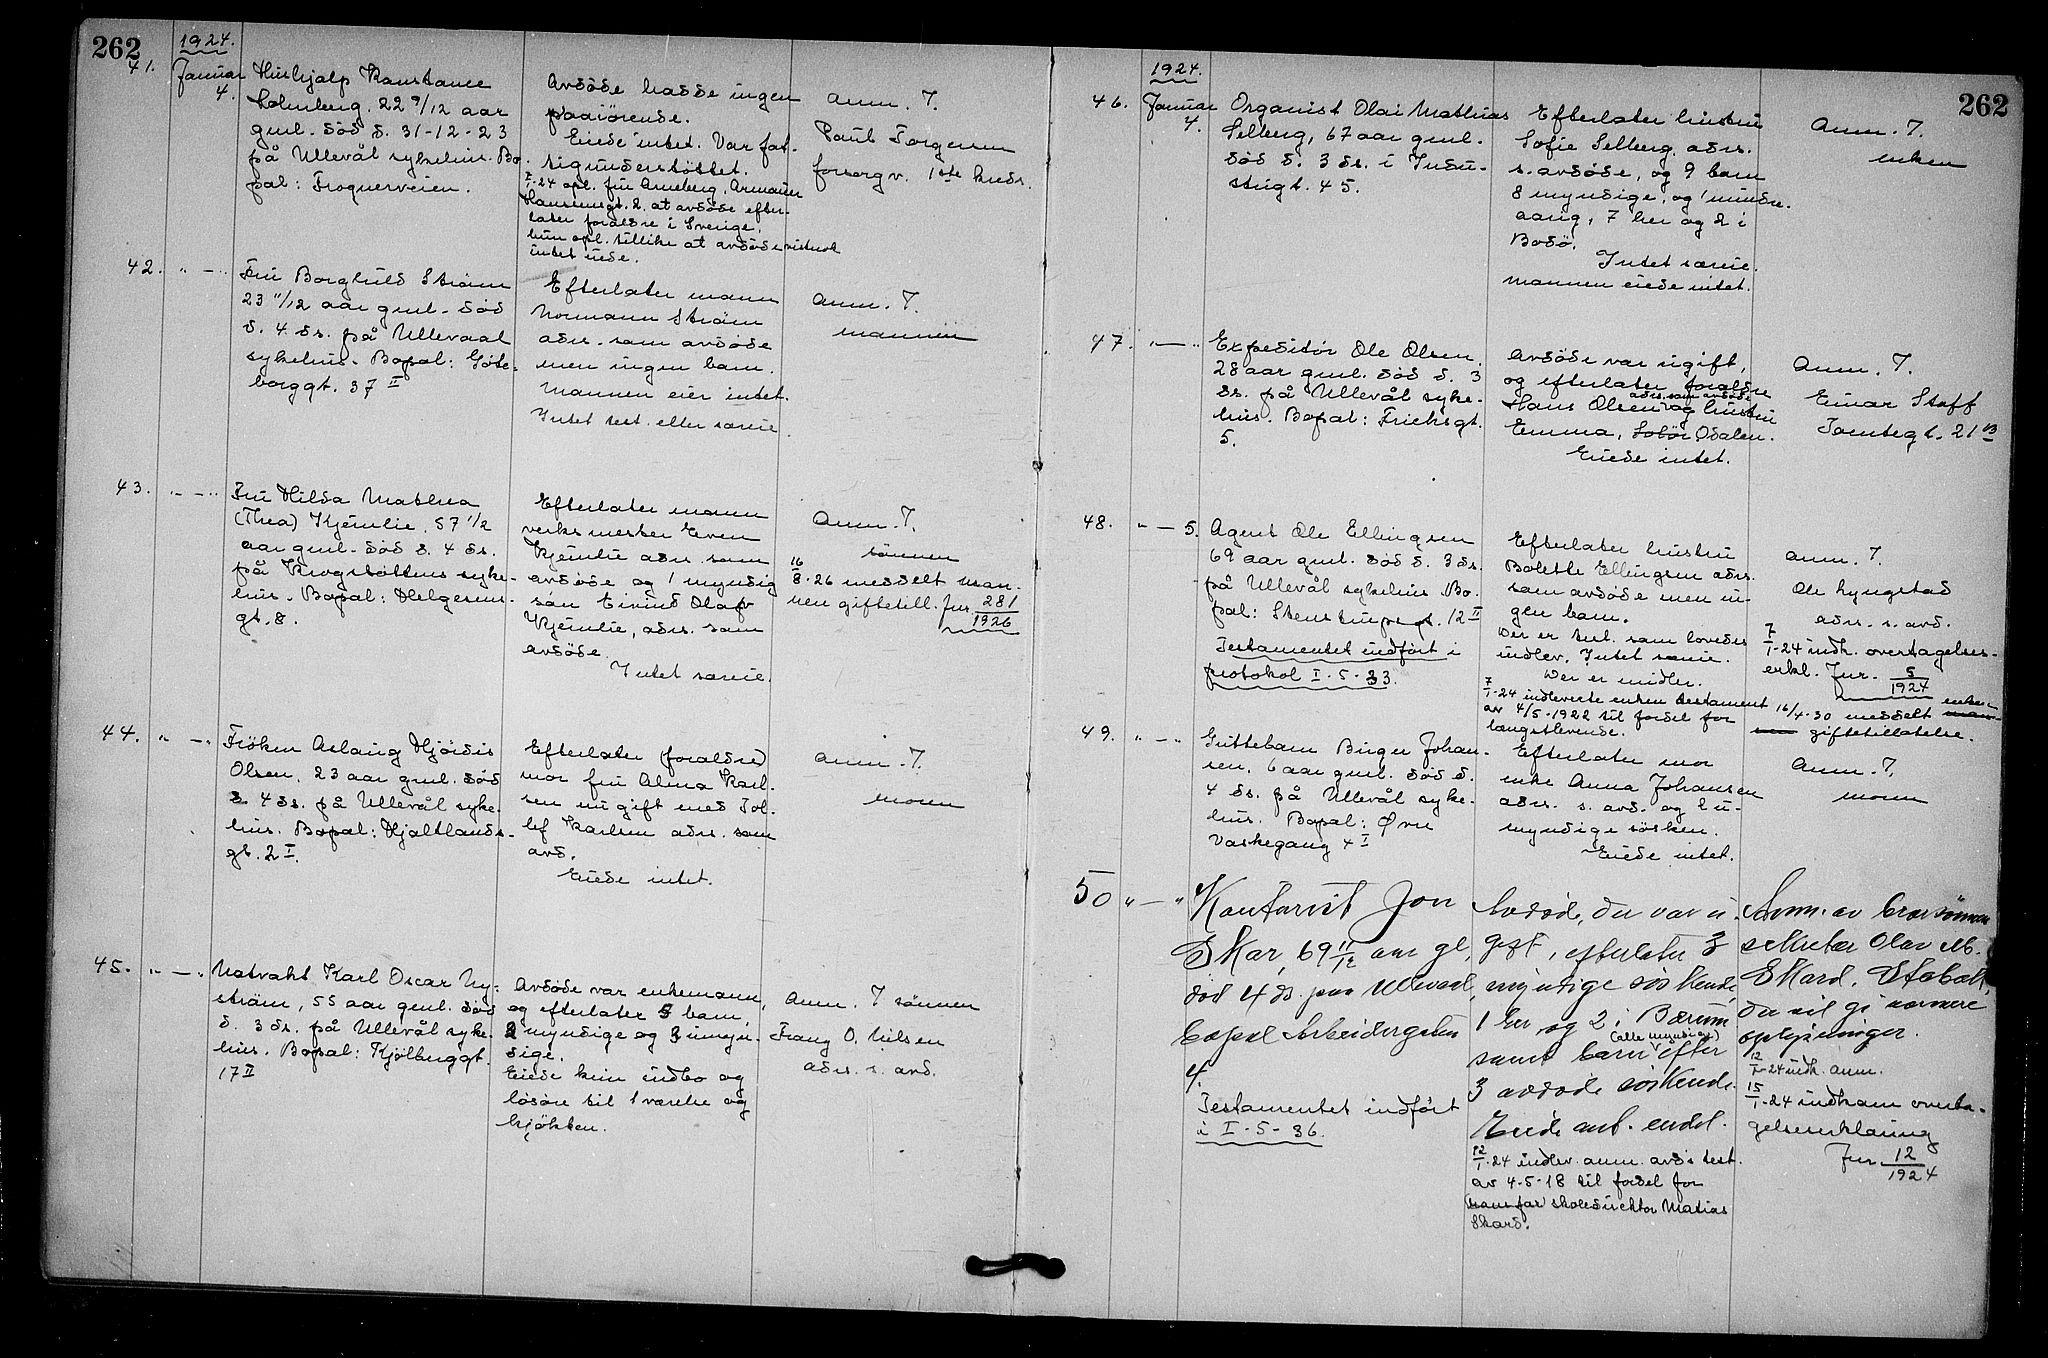 262
1924.
41.
Januar
4.
Hushjælp Konstance
Holmberg. 22 9/12 aar
gml. död d. 31-12-23
på Ullevål sykehus. Bo-
pæl: Frognerveien.
Avdöde hadde ingen
paarörende.
Eiede intet. Var fat-
tigunderstöttet.
7/1-24 opl. fru Arneberg, Armauer
Hansensgt. 2. at avdöde efter-
later forældre i Sverige.
hun opl. tillike at avdöde vistnok
intet eiede.
anm. T.
Paul Torgersen
forsorg v. 1ste kreds.
42. " — "
Fru Borghild Ström
23 11/12 aar gml. död
d. 4 ds. på Ullevaal
sykehus. Bopæl: Göte-
borggt. 37 II
Efterlater mann
Normann Ström
adrs. som avdöde
men ingen barn.
Mannen eier intet.
Intet test. eller særeie.
anm. T.
mannen
43. " — "
Fru Hilda Mathea
(Thea) Kjernlie, 57 1/2
aar gml. död d. 4 ds.
på Krogstöttens syke-
hus. Bopæl: Helgesens-
gt. 8.
Efterlater mann
verksmester Even
Kjernlie adrs. som
avdöde og 1 myndig
sön Eivind Olaf
Kjernlie, adrs. som
avdöde.
Intet særeie.
anm. T.
sönnen
16/8-26 meddelt man-
nen giftetill. Jnr. 281/1926
44. " — "
Fröken Aslaug Hjördis
Olsen, 23 aar gml. död
d. 4 ds. på Ullevål syke-
hus. Bopæl: Hjaltlands-
gt. 2 I.
Efterlater (forældre)
mor fru Alma Karl-
sen nu gift med Tol-
lef Karlsen adrs. som
avd.
Eiede intet.
anm. T.
moren
45. " — "
Natvakt Karl Oscar Ny-
ström, 55 aar gml. död
d. 3 ds. på Ullevål syke-
hus. Bopæl: Kjölberggt.
17 II
Avdöde var enkemann,
og efterlater 5 barn,
2 myndige og 3 umyn-
dige.
Eiede kun indbo og
lösöre til 1 værelse og
kjökken.
anm. T sönnen
Franz O. Nilsen
adrs. s. avd.
262
1924.
46.
Januar
4.
Organist Olai Mathias
Selberg, 67 aar gml.
död d. 3 ds. i Indu-
strigt. 45.
Efterlater hustru
Sofie Selberg, adrs.
s. avdöde, og 9 barn
8 myndige, og 1 mindre-
aarig, 7 her og 2 i
Bodö.
Intet særeie.
mannen eiede intet.
Anm. T.
enken
47. " — "
Expeditör Ole Olsen,
28 aar gml. död d. 3
ds. på Ullevål syke-
hus. Bopæl: Frichsgt.
5.
Avdöde var ugift,
og efterlater forældre
adrs. som avdöde
Hans Olsen og hustru
Emma, Solör Odalen.
Eiede intet.
Anm. T.
Einar Staff
Tomtegt. 21 B
48. " — 5.
Agent Ole Ellingsen
69 aar gml. död d. 3 ds.
på Ullevål sykehus Bo-
pæl: Stenstrupsgt. 12 II
Testamentet indfört i
protokol I-5-33.
Efterlater hustru
Bolette Ellingsen adrs.
som avdöde men in-
gen barn.
Der er test. som lovedes
indlev. Intet særeie.
Der er midler.
7/1-24 indleverte enken testament
av 4/5-1922 til fordel for
længstlevende.
anm. T.
Ole Lyngstad
adrs. s. avd.
7/1-24 indk. overtagelses-
erkl. Jnr. 5/1924
enken
16/4-30 meddelt man-
nen giftetillatelse.
49. " — "
Guttebarn Birger Johan-
sen, 6 aar gml. död d.
4 ds. på Ullevål syke-
hus. Bopæl: Øvre
Vaskegang 4 I
Efterlater mor
enke Anna Johansen
adrs. s. avd. og 2 u-
myndige sösken.
Eiede intet.
Anm. T.
moren
50 " — "
Kontorist Jon
Skar, 69 11/12 aar gl,
död 4 ds. paa Ullevaal,
bopæl Arbeidergaten
4.
Testamentet indfört
i I-5-36.
Avdöde, der var u-
gift, efterlater 3
myndige söskende
1 her og 2 i Bærum,
(alle myndige)
samt barn efter
3 avdöde söskende.
Eiede ant. endel.
12/1-24 indlev. anm. avd's test.
av 4-5-18 til fordel for
(hans far) skoledirektör Matias
Skard.
Anm. av brorsönnen
sekretær Olav M.
Skard, Stabæk,
der vil gi nærmere
oplysninger.
12/1-24 indk. anm.
15/1-24 indkom overta-
gelseserklæring
Jnr. 12/1924